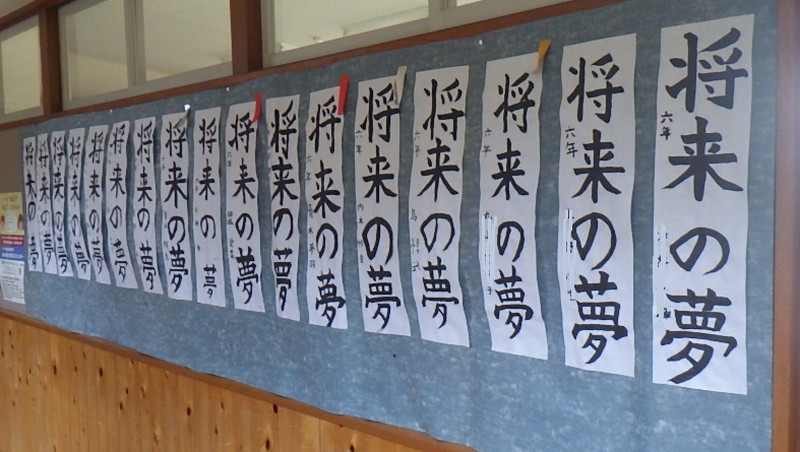 将来の夢
六年
将来の夢
六年
将来の夢
六年
将来の夢
六年
将来の夢
六年
将来の夢
六年
将来の夢
将来の夢
六年
将来の夢
将来の夢
将来の夢
将来の夢
将来の夢
将来の夢
将来の夢
将来の夢
将来の夢